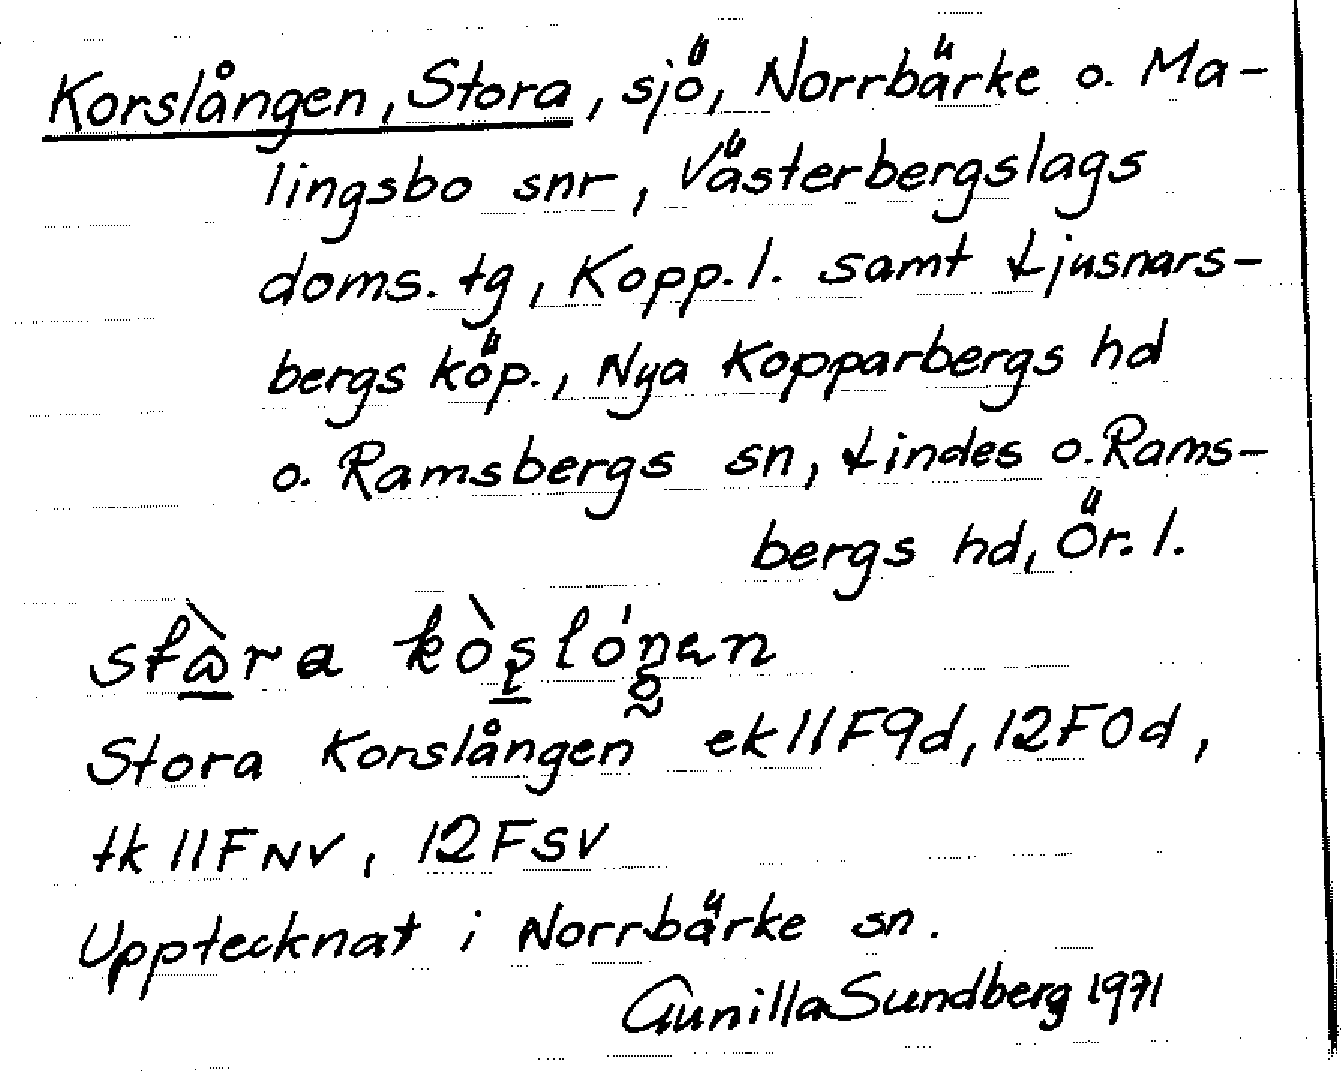 Korslången, Stora, sjö, Norrbärke o. Ma-
lingsbo snr, Västerbergslags
doms. tg, Kopp. l. samt Ljusnars-
bergs köp., Nya Kopparbergs hd
o. Ramsbergs sn, Lindes o. Rams-
bergs hd, Ör. l.
Stora Korslången ek 11F9d, 12F0d,
tk 11F NV, 12F SV
Upptecknat i Norrbärke sn.
Gunilla Sundberg 1971